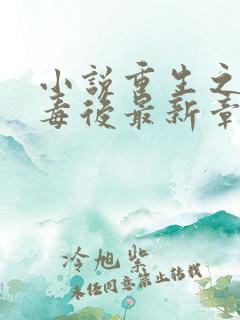 小说重生之
毒後最新章
冷旭紫
未经同意禁止转载